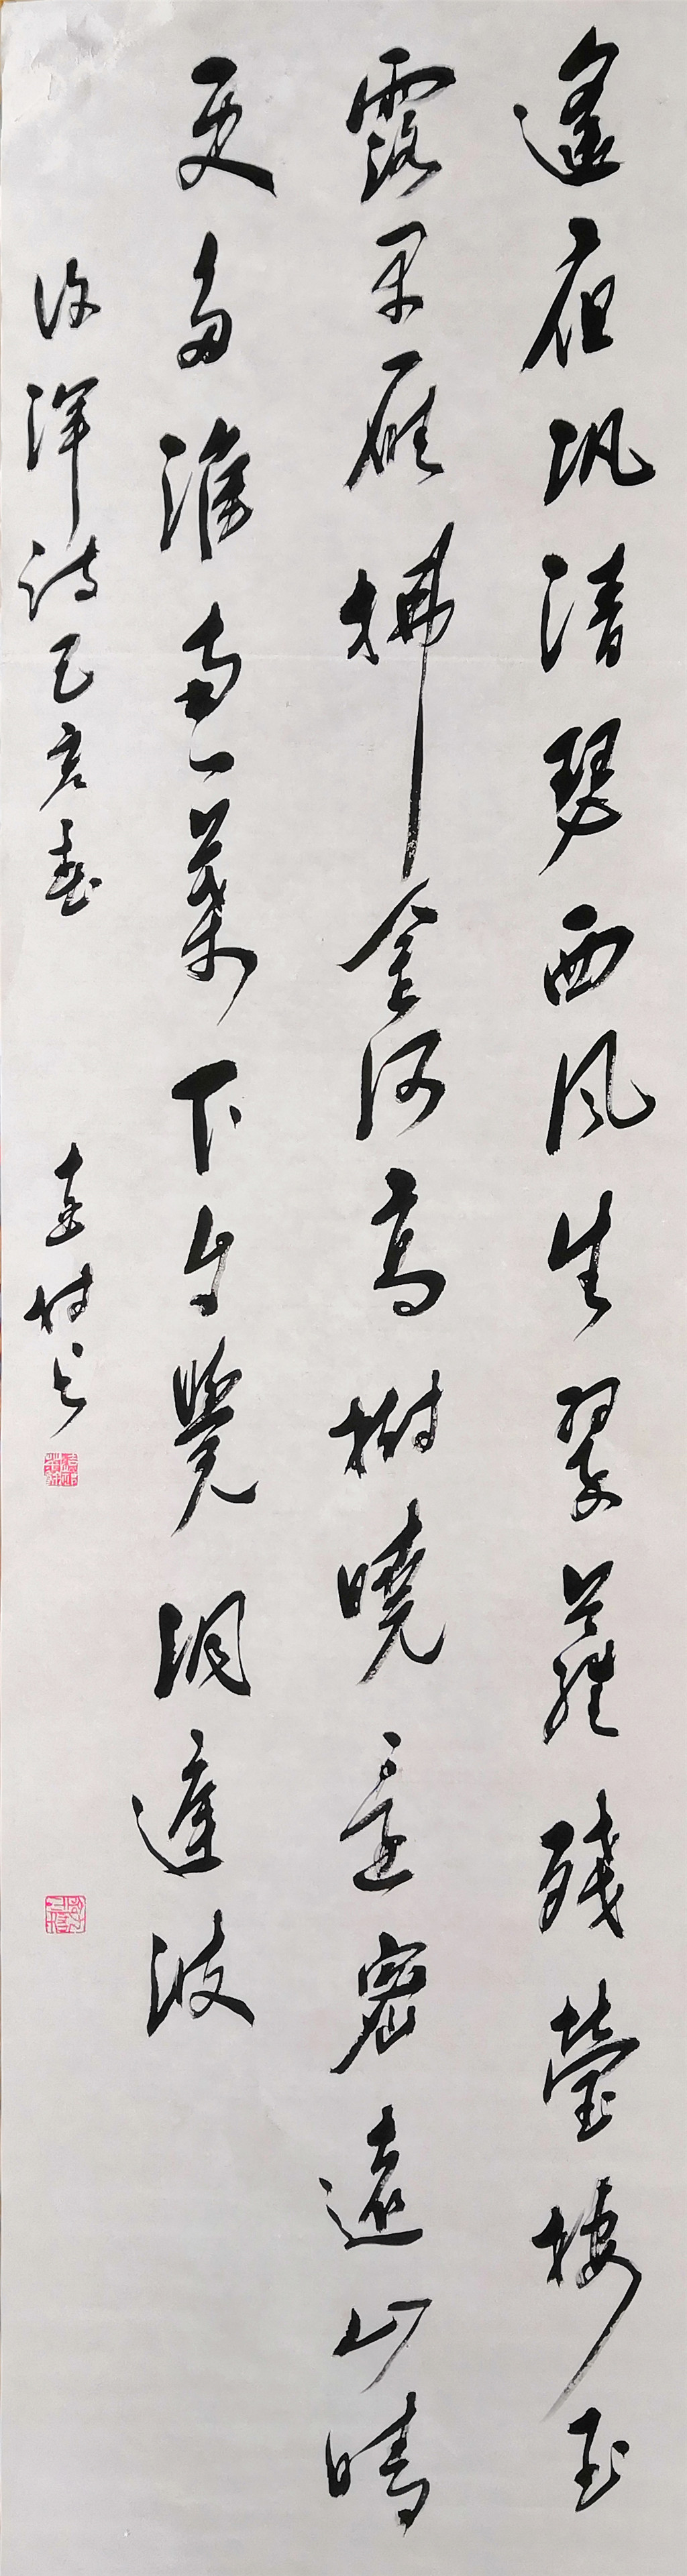 遙夜汎清瑟西風生翠蘿殘螢棲玉
露早雁拂金河高樹曉還密遠山晴
更多淮南一葉下自覺洞庭波
许渾詩己亥春